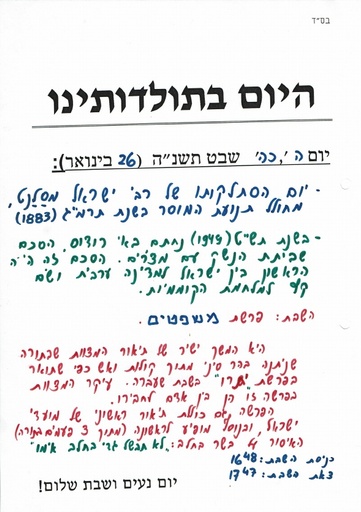 בס"ד
היום בתולדותינו
יום ה', כה' שבט תשנ"ה (26 בינואר):
- יום הסתלקותו של רבי ישראל מסלנט,
מחולל תנועת המוסר בשנת תרמ"ג (1883)
- בשנת תש"ט (1949) נחתם בא' רודוס הסכם
שביתת הנשק עם מצרים. הסכם זה היה
הראשון בין ישראל למדינה ערבית ושם
קץ למלחמת הקוממיות.
השבת: פרשת משפטים.
היא המשך ישיר של תיאור המצוות שבתורה
שניתנה בהר סיני מתוך קולות ואש כפי שתואר
בפרשת "יתרו" בשבת שעברה. עיקר המצוות
בפרשה זו הן בין אדם לחבירו.
הפרשה גם כוללת תיאור ראשוני של מועדי
ישראל, ובנוסף מופיע לראשונה (מתוך 3 פעמים בתורה)
האיסור של בשר בחלב: "לא תבשל גדי בחלב אמו"
כניסת השבת: 16:48
צאת השבת: 17:47
יום נעים ושבת שלום!